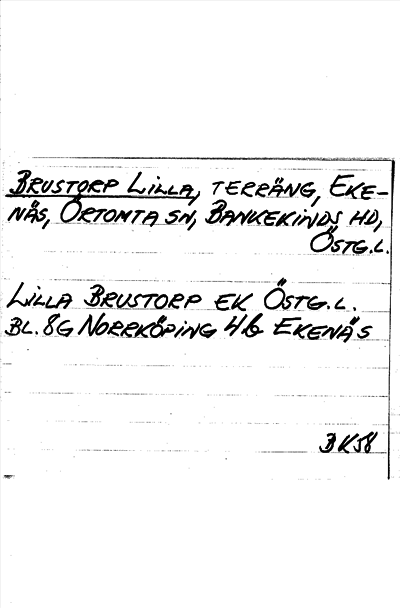 BRUSTORP LILLA, TERRÄNG, EKE-
NÄS, ÖRTOMTA SN, BANKEKINDS HD,
ÖSTG.L.
LILLA BRUSTORP EK ÖSTG.L.
BL. 8G NORRKÖPING 4b EKENÄS
BK58